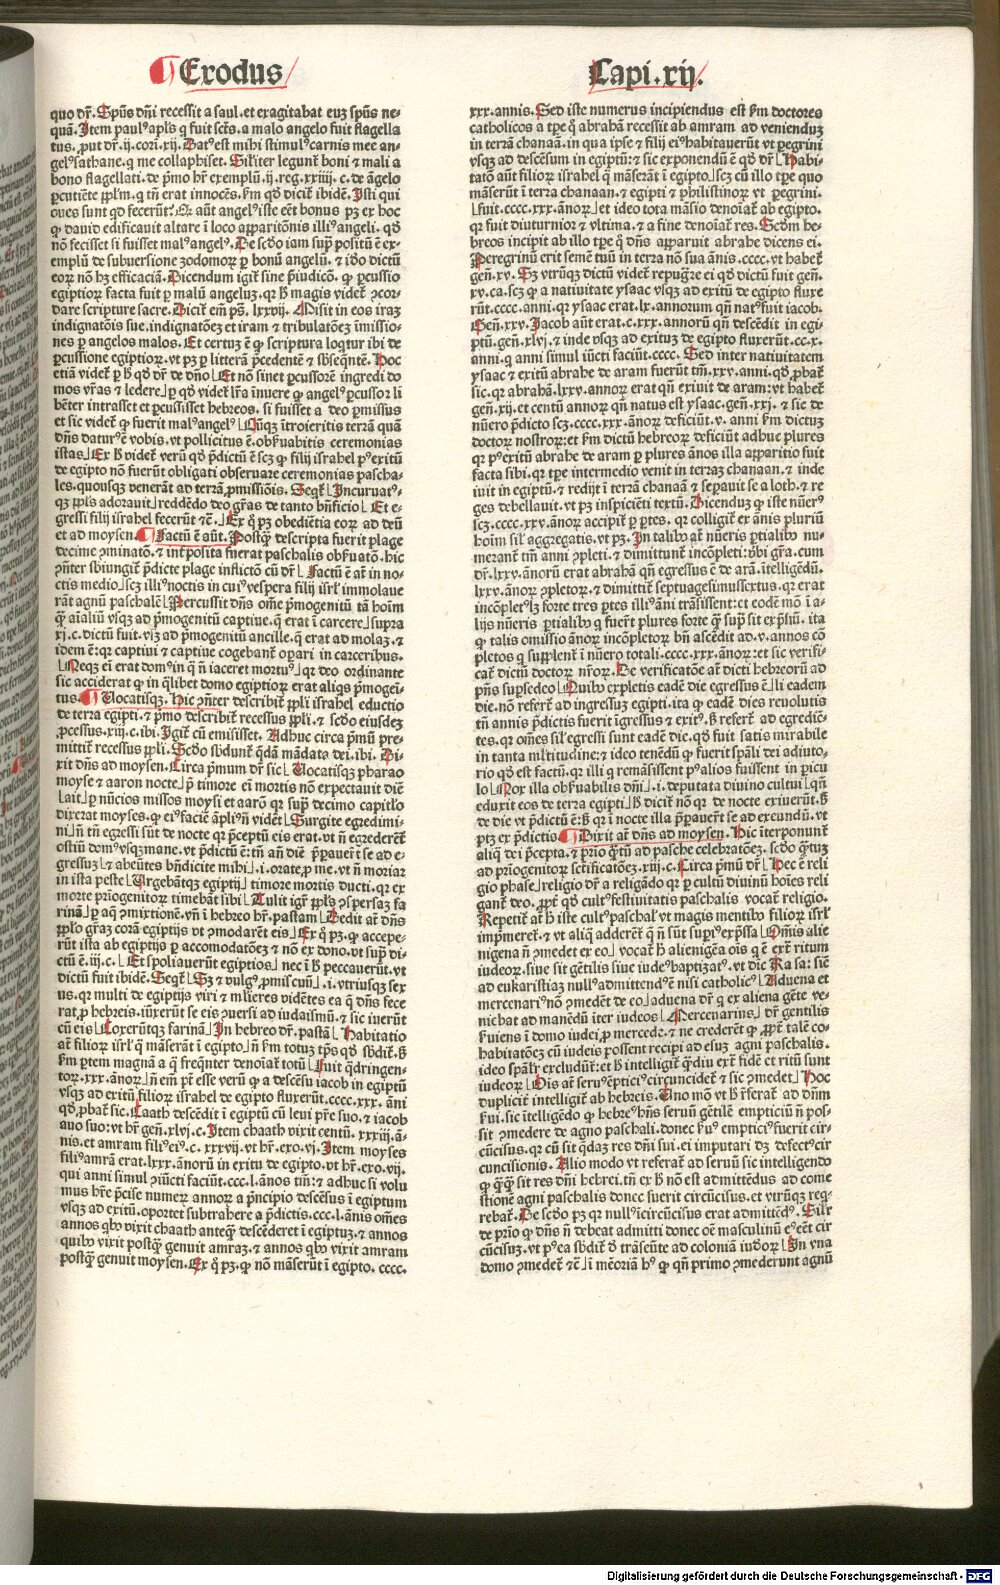 Exodus
Capi.xij.
quo dr̄. Spūs dn̄i recessit a saul. et exagitabat euʒ spūs ne-
quā. Item paulꝰ apl̄s q fuit sct̄s. a malo angelo fuit flagella
tus. ꝓut dr̄. ij. cori. xij. Datꝰ est mihi stimulꝰ carnis mee an-
gelꝰ sathane. q me collaphiset. Silīter legunt̄ boni ⁊ mali a
bono flagellati. de p̄mo hr̄ exemplū. ij. reg. xxiiij. c. de āgelo
ꝑcutiēte pplm̄. q tn̄ erat innocēs. km̄ qd̄ dicit̄ ibidē. Isti qui
oues sunt qd fecerūt? Qr aūt angelꝰ iste eēt bonus pʒ ex hoc
ꝙ dauid edificauit altare ī loco apparitōnis illiꝰ angeli. qd̄
nō fecisset si fuisset malꝰ angelꝰ. De scd̄o iam supͣ positū ē ex-
emplū de subuersione zodomoꝝ ꝑ bonū angelū. ⁊ iō dictū
eoꝝ nō hʒ efficaciā. Dicendum igit̄ sine p̄iudicō. ꝙ ꝑcussio
egiptioꝝ facta fuit ꝑ malū angeluʒ. qꝛ h̄ magis videt̄ ꝯcor-
dare scripture sacre. Dicit̄ em̄ ps̄. lxxvij. Misit in eos iraʒ
indignatōis sue. indignatōeʒ et iram ⁊ tribulatōeʒ īmissio-
nes ꝑ angelos malos. Et certuʒ ē ꝙ scriptura loqtur ibi de
ꝑcussione egiptioꝝ. vt pʒ ꝑ litterā p̄cedentē ⁊ sb̄seqn̄tē. Hoc
etiā videt̄ ꝑ h̄ qd̄ dr̄ de dn̄o ⌊Et nō sinet ꝑcussorē ingredi do
mos vr̄as ⁊ ledere⌋ ꝑ qd̄ videt̄ lr̄a īnuere ꝙ angelꝰ ꝑcussor li
bēter intrasset et ꝑcussisset hebreos. si fuisset a deo ꝑmissus
et sic videt̄ ꝙ fuerit malꝰ angelꝰ ⌊Cūqʒ ītroieritis terrā quā
dn̄s daturꝰ ē vobis. vt pollicitus ē. obẜuabitis ceremonias
istas⌋ Ex h̄ videt̄ verū qd̄ p̄dictū ē scʒ ꝙ filij israhel pꝰ exitū
de egipto nō fuerūt obligati obseruare ceremonias pascha-
les. quousqʒ venerāt ad terrā ꝓmissiōis. Seqt̄ ⌊Incuruatꝰ-
qʒ ppl̄s adorauit⌋ reddēdo deo gr̄as de tanto bn̄ficio ⌊Et e-
gressi filij israhel fecerūt ⁊c̄ ⌊Ex q̄ pʒ obediētia eoꝝ ad deū
et ad moysen. ¶ Factū ē aūt. Postqͣ descripta fuerit plage
decime ꝯminatō. ⁊ int̄posita fuerat paschalis obẜuatō. hic
ꝯn̄ter sbiungit̄ p̄dicte plage inflictō cū dr̄ ⌊Factū ē at̄ in no-
ctis medio⌋ scʒ illiꝰ noctis in cuiꝰ vespera filij isrl̄ immolaue
rāt agnū paschalē ⌊Percussit dn̄s om̄e p̄mogenitū tā hoīm
qͣ aialiū vsqʒ ad p̄mogenitū captiue. q̄ erat ī carcere⌋ supra
xj. c. dictū fuit. vsʒ ad p̄mogenitū ancille. q̄ erat ad molaʒ. ⁊
idem ē: qꝛ captiui ⁊ captiue cogebant̄ oꝑari in carceribus.
⌊Neqʒ ei erat domꝰ in q̄ n̄ iaceret mortuꝰ⌋ qꝛ deo ordinante
sic acciderat ꝙ in qͣlibet domo egiptioꝝ erat aliqs p̄mogēi-
tus. ¶ Uocatisqʒ. Hic ꝯn̄ter describit̄ ppl̄i israhel eductio
de terra egipti. ⁊ p̄mo describit̄ recessus ppl̄i. ⁊ scd̄o eiusdeʒ
ꝓcessus. xiij. c. ibi. Igit̄ cū emisisset. Adhuc circa p̄mū p̄re-
mittit̄ recessus ppl̄i. Scd̄o sb̄dunt̄ qͥdā mādata dei. ibi. Di-
xit dn̄s ad moysen. Circa p̄mum dr̄ sic ⌊Uocatisqʒ pharao
moyse ⁊ aaron nocte⌋ ꝑ timore ei mortis nō expectauit diē
⌊ait⌋ ꝑ nūcios missos moysi et aarō qꝛ supͣ decimo capitl̄o
dixerat moyses. ꝙ eiꝰ faciē ampliꝰ n̄ vidēt ⌊Surgite egredimi-
ni⌋ n̄ tn̄ egressi sūt de nocte qꝛ p̄ceptū eis erat. vt n̄ egrederēt̄
ostiū domꝰ vsqʒ mane. vt p̄dictū ē: tn̄ an̄ diē p̄paueīt se ad e-
gressuʒ ⌊⁊ abeūtes bn̄dicite mihi⌋ .i. orate ꝓ me. vt n̄ moriar
in ista peste ⌊Urgebātqʒ egiptij⌋ timore mortis ducti. qꝛ ex
morte priogenitoꝝ timebāt sibi ⌊Tulit igit̄ ppl̄s ꝯspersaʒ fa
rinā⌋ ꝑ aq̄ ꝯmixtionē. vn̄ ī hebreo hr̄. pastam ⌊Dedit at̄ dn̄s
ppl̄o gr̄aʒ corā egiptijs vt ꝯmodarēt eis⌋ Ex q̄ pʒ. ꝙ accepe-
rūt ista ab egiptijs ꝑ accomodatōeʒ ⁊ nō ex dono. vt supͣ di-
ctū ē. iij. c. ⌊Et spoliauerūt egiptios⌋ nec ī h̄ peccauerūt. vt
dictū fuit ibidē. Seqt̄ ⌊Sʒ ⁊ vulgꝰ ꝓmiscuū⌋ .i. vtriusqʒ sex
us. qꝛ multi de egiptijs viri ⁊ mlieres vidētes ea q̄ dn̄s fece
rat. ꝓ hebreis. iūxerūt se eis ꝯuersi ad iudaismū. ⁊ sic iuerūt
cū eis ⌊Coxerūtqʒ farinā⌋ In hebreo dr̄. pastā ⌊Habitatio
at̄ filioꝝ isrl̄ q̄ māserāt ī egipto⌋ n̄ km̄ totuʒ tp̄s qd̄ sb̄dit̄. h̄
km̄ ꝑtem magnā a q̄ freqn̄ter denoīat̄ totū ⌊Fuit qͣdringen-
toꝝ. xxx. ānoꝝ⌋ n̄ em̄ pt̄ esse verū ꝙ a descēsu iacob in egiptū
vsqʒ ad exitū filioꝝ israhel de egipto fluxerūt. cccc. xxx. āni
qd̄ ꝓbat̄ sic. Caath descēdit ī egiptū cū leui pr̄e suo. ⁊ iacob
auo suo: vt hr̄ gen̄. xlvj. c. Item chaath vixit centū. xxxiij. ā-
nis. et amram filiꝰ eiꝰ. c. xxxvij. vt hr̄. exo. vj. Item moyses
filiꝰ amrā erat. lxxx. ānorū in exitu de egipto. vt hr̄. exo. vij.
qui anni simul ꝯiūcti faciūt. ccc. l. ānos tm̄: ⁊ adhuc si volu
mus hr̄e p̄cise numeꝝ annoꝝ a p̄ncipio descēsus ī egiptum
vsqʒ ad exitū. oportet subtrahere a p̄dictis. ccc. l. ānis om̄es
annos qbꝰ vixit chaath anteqͣ descēderet ī egiptuʒ. ⁊ annos
quibꝰ vixit postqͣ genuit amraʒ. ⁊ annos qbꝰ vixit amram
postqͣ genuit moysen. Ex q̄ pʒ. ꝙ nō māserūt ī egipto. cccc.
xxx. annis. Sed iste numerus incipiendus est km̄ doctores
catholicos a tꝑe q̄ abrahā recessit ab amram ad veniendum
in terrā chanaā. in qua ipse ⁊ filij eiꝰ habitauerūt vt ꝑegrini
vsqʒ ad descēsum in egiptū: ⁊ sic exponendū ē qd̄ dr̄ ⌊Habi-
tatō aūt filioꝝ israhel q̄ māserāt ī egipto⌋ scʒ cū illo tꝑe quo
māserūt ī terra chanaan. ⁊ egipti ⁊ philistinoꝝ vt ꝑegrini.
⌊fuit. cccc. xxx. ānoꝝ⌋ et ideo tota māsio denoīat̄ ab egipto.
qꝛ fuit diuturnior ⁊ vltima. ⁊ a fine denoīat̄ res. Scd̄m he-
breos incipit ab illo tꝑe q̄ dn̄s apparuit abrahe dicens ei.
Peregrinū erit semē tuū in terra nō sua ānis. cccc. vt habet̄
gen̄. xv. Sʒ vtrūqʒ dictū videt̄ repugͣre ei qd̄ dictū fuit gen̄.
xv. ca. scʒ ꝙ a natiuitate ysaac vsqʒ ad exitū de egipto fluxe
rūt. cccc. anni. qꝛ ysaac erat. lx. annorum qn̄ natꝰ fuit iacob.
Gen̄. xxv. Jacob aūt erat. c. xxx. annorū qn̄ descēdit in egi-
ptū. gen̄. xlvj. ⁊ inde vsqʒ ad exituʒ de egipto fluxerūt. cc. x.
anni. q anni simul iūcti faciūt. cccc. Sed inter natiuitatem
ysaac ⁊ exitū abrahe de aram fuerūt tm̄. xxv. anni. qd̄ ꝓbat̄
sic. qꝛ abrahā. lxxv. annoꝝ erat qn̄ exiuit de aram: vt habet̄
gen̄. xij. et centū annoꝝ qn̄ natus est ysaac. gen̄. xxj. ⁊ sic de
nūero p̄dicto scʒ. cccc. xxx. ānoꝝ deficiūt. v. anni km̄ dictuʒ
doctoꝝ nostroꝝ: et km̄ dictū hebreoꝝ deficiūt adhuc plures
qꝛ pꝰ exitū abrahe de aram ꝑ plures ānos illa apparitio fuit
facta sibi. qꝛ tꝑe intermedio venit in terraʒ chanaan. ⁊ inde
iuit in egiptū. ⁊ redijt ī terrā chanaā ⁊ seꝑauit se a loth. ⁊ re
ges debellauit. vt pʒ inspiciēti textū. Dicenduʒ ꝙ iste nūerꝰ
scʒ. cccc. xxx. ānoꝝ accipit̄ ꝑ ꝑtes. qꝛ colligit̄ ex ānis pluriū
hoīm sil̄ aggregatis. vt pʒ. In talibꝰ at̄ nūeris ꝑtialibꝰ nu-
merant̄ tm̄ anni ꝯpleti. ⁊ dimittunt̄ incōpleti: vbi gr̄a. cum
dr̄. lxxv. ānorū erat abrahā qn̄ egressus ē de arā. ītelligēdū.
lxxv. ānoꝝ ꝯpletoꝝ. ⁊ dimittit̄ septuagesimussextus. qꝛ erat
incōpletꝰ lʒ forte tres ꝑtes illiꝰ āni trāsissent: et eodē mō ī a-
lijs nūeris ꝑtialibꝰ q fuert̄ plures forte qͣ supͣ sit exp̄ssū. ita
ꝙ talis omissio ānoꝝ incōpletoꝝ bn̄ ascēdit ad. v. annos cō
pletos q supplent̄ ī nūero totali. cccc. xxx. ānoꝝ: et sic verifi-
cat̄ dictū doctoꝝ nr̄oꝝ. De verificatōe at̄ dicti hebreorū ad
pn̄s supsedeo ⌊Quibꝰ expletis eadē die egressus ē⌋ Li eadem
die. nō refert̄ ad ingressuʒ egipti. ita ꝙ eadē dies reuolutis
tn̄ annis p̄dictis fuerit īgressus ⁊ exitꝰ. h̄ refert̄ ad egrediē-
tes. qꝛ om̄es sil̄ egressi sunt eadē die. qd̄ fuit satis mirabile
in tanta mltitudine: ⁊ ideo tenēdū ꝙ fuerit spāli dei adiuto-
rio qd̄ est factū. qꝛ illi q remāsissent pꝰ alios fuissent in picu
lo ⌊Nox illa obẜuabilis dn̄i⌋ .i. deputata diuino cultui ⌊qn̄
eduxit eos de terra egipti⌋ h̄ dicit̄ nō qꝛ de nocte exiuerūt. h̄
de die vt p̄dictū ē: h̄ qꝛ ī nocte illa p̄pauer̄t se ad exeundū. vt
ptʒ ex p̄dictis. ¶ Dixit at̄ dn̄s ad moysen. Hic īterponunt̄
aliq̄ dei p̄cepta. ⁊ prio qͣtū ad pasche celebratōeʒ. scd̄o qͣtuʒ
ad priogenitoꝝ sctificatōeʒ. xiij. c. Circa p̄mū dr̄ ⌊Hec ē reli
gio phase⌋ religio dr̄ a religādo qꝛ ꝑ cultū diuinū hoīes reli
gant̄ deo. ꝓpt̄ qd̄ cultꝰ festiuitatis paschalis vocat̄ religio.
Repetit̄ at̄ h̄ iste cultꝰ paschalꝰ vt magis mentibꝰ filioꝝ isrl̄
imp̄meret̄. ⁊ vt aliq̄ adderēt̄ q̄ n̄ sūt supiꝰ exp̄ssa ⌊Om̄is alie
nigena n̄ ꝯmedet ex eo⌋ vocat̄ h̄ alienigēa oīs q ē extͣ ritum
iudeoꝝ. siue sit gētilis siue iudeꝰ baptizatꝰ. vt dic̄ Ra sa: sic̄
ad eukaristiaʒ nullꝰ admittendꝰ ē nisi catholicꝰ ⌊Aduena et
mercenariꝰ nō ꝯmedēt de eo⌋ aduena dr̄ q ex aliena gēte ve-
niebat ad manēdū īter iudeos ⌊Mercenarius⌋ dr̄ gentilis
ẜuiens ī domo iudei ꝓ mercede. ⁊ ne crederēt̄ ꝙ ꝓpt̄ talē co-
habitatōeʒ cū iudeis possent recipi ad esuʒ agni paschalis.
ideo spāl̄r excludūt̄: et h̄ intelligit̄ qͣdiu extͣ fidē et ritū sunt
iudeoꝝ ⌊Oīs at̄ seruꝰ ēpticiꝰ circuncidet̄ ⁊ sic ꝯmedet⌋ Hoc
duplicit̄ intelligit̄ ab hebreis. Uno mō vt h̄ r̄ferat̄ ad dn̄m
ẜui. sic ītelligēdo ꝙ hebreꝰ hn̄s seruū gētilē empticiū n̄ pos-
sit ꝯmedere de agno paschali. donec ẜuꝰ empticiꝰ fuerit cir-
cūcisus. qꝛ cū sit qͣdaʒ res dn̄i sui. ei imputari dʒ defectꝰ cir
cuncisionis. Alio modo vt referat̄ ad seruū sic intelligendo
ꝙ qͣqͣ sit res dn̄i hebrei. tn̄ ex h̄ nō est admittēdus ad come
stionē agni paschalis donec fuerit circūcisus. et vtrūqʒ req-
rebat̄. De scd̄o pʒ qꝛ nullꝰ icircūcisus erat admittēdꝰ. Sil̄r
de prio ꝙ dn̄s n̄ debeat admitti donec oē masculinū eiꝰ eēt cir
cūcisuʒ. vt pꝰ ea sb̄dit̄ d̄ trāseūte ad coloniā iudoꝝ ⌊In vna
domo ꝯmedet̄ ⁊c̄ ⌋ ī mēoriā hꝰ ꝙ qn̄ primo ꝯmederunt agnū
Digitalisierung gefördert durch die Deutsche Forschungsgemeinschaft - DFG